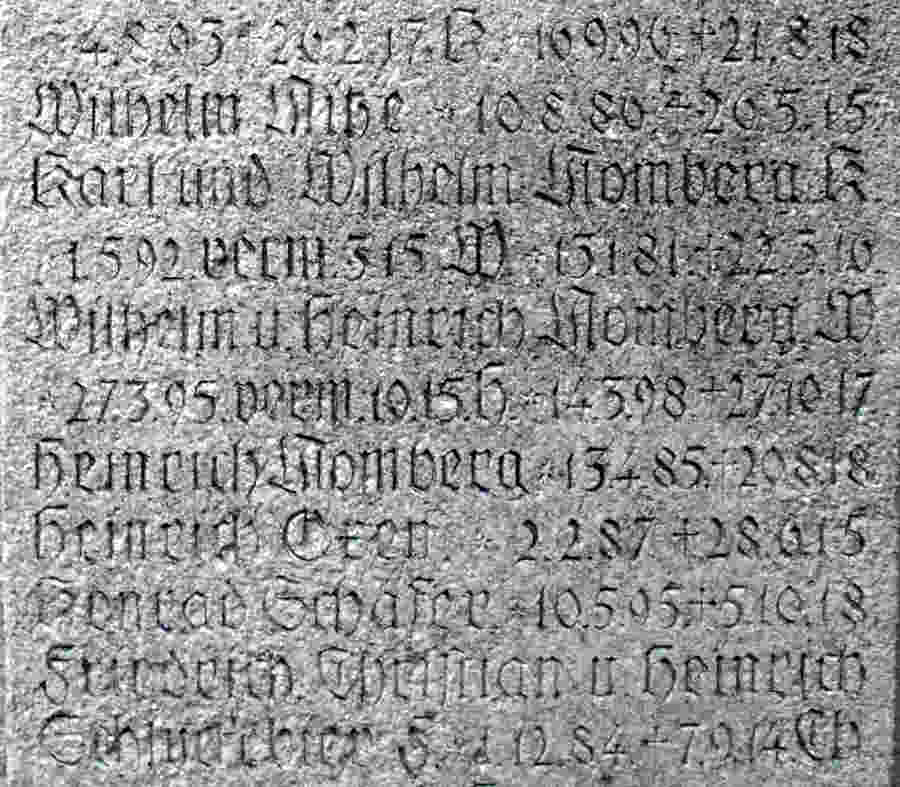 4.8.93 + 20.2.17. K. * 10.9.96 + 21.8.18
Wilhelm Nitze * 10.8.80 + 20.5.15
Karl und Wilhelm Nomberg. K.
* 1.5.92 verm. 3.15 W. * 13.1.81 + 22.3.16.
Wilhelm u. Heinrich Nomberg. W.
* 27.3.95. verm. 10.15. H. * 14.3.98 + 27.10.17
Heinrich Nomberg * 13.4.85. + 20.8.18
Heinrich Exer * 2.2.87 + 28.6.15
Konrad Schäfer * 10.5.95 + 5.10.18.
Friedrich, Christian u. Heinrich
F. * 1.12.84 + 7.9.14. Ch